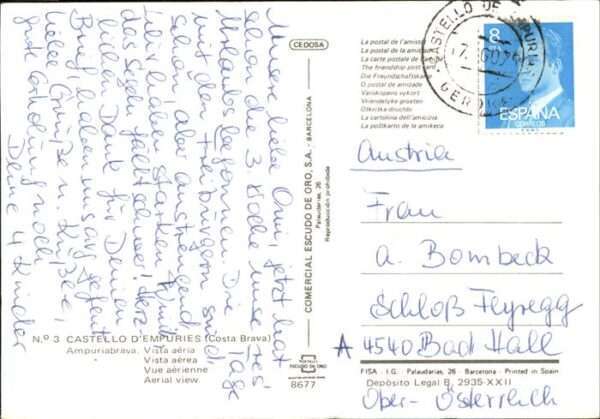 Unsere liebe Omi, jetzt hat
schon die 3. Woche unseres
Urlaubes begonnen. Die Tage
mit den Freibürgern sind
schön, aber anstrengend
für den starken Wind
das Segeln fällt schwer! Herz-
lichen Dank für Deinen
Brief, haben uns arg gefreut
Liebe Grüße u. Küße,
gute Erholung noch
Deine 4 Kinder
N.º 3 CASTELLO D'EMPURIES (Costa Brava)
Ampuriabrava. Vista aéria
Vista aérea
Vue aérienne
Aerial view.
CEDOSA
COMERCIAL ESCUDO DE ORO, S.A. - BARCELONA
Palaudarias, 26
Reproducción prohibida
ESCUDO DE ORO
8677
La postal de l'amistat
La postal de la amistad
La carte postale de l'amitié
The friendship post card
Die Freundschaftskarte
O postal de amizade
Vänskapens vykort
Vriendelijke groeten
La cartolina dell'amicizia
CASTELLO DE AMPURIAS
GERONA
8
ESPAÑA
CORREOS
Austria
Frau
A. Bombeck
Schloß Feyregg
A 4540 Bad Hall
FISA - I.G. - Palaudarias, 26 - Barcelona - Printed in Spain
Depósito Legal B. 2935-XXII
Ober-Österreich